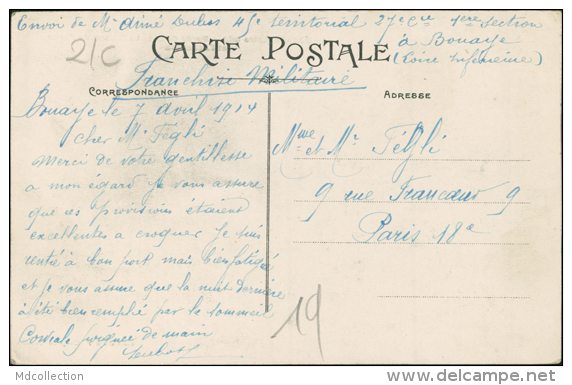 Envoi de Mr Aimé Dubos 45e territorial 27e Cie 1ère Section
à Bouaye
(Loire Inférieure)
2/C
CARTE POSTALE
Franchise Militaire
CORRESPONDANCE
ADRESSE
Bouaye le 7 avril 1914
Cher Mr Téglé
Merci de votre gentillesse
a mon égard je vous assure
que ces provisions étaient
excellentes a croquer je suis
rentré à bon port mais bien fatigué
et je vous assure que la nuit dernière
à été bien remplie par le sommeil
Cordiale poignée de main
Dubos
Mme et Mr Téglé
9 rue Francœur 9
Paris 18e
19
Mdcollection
delcampe.net